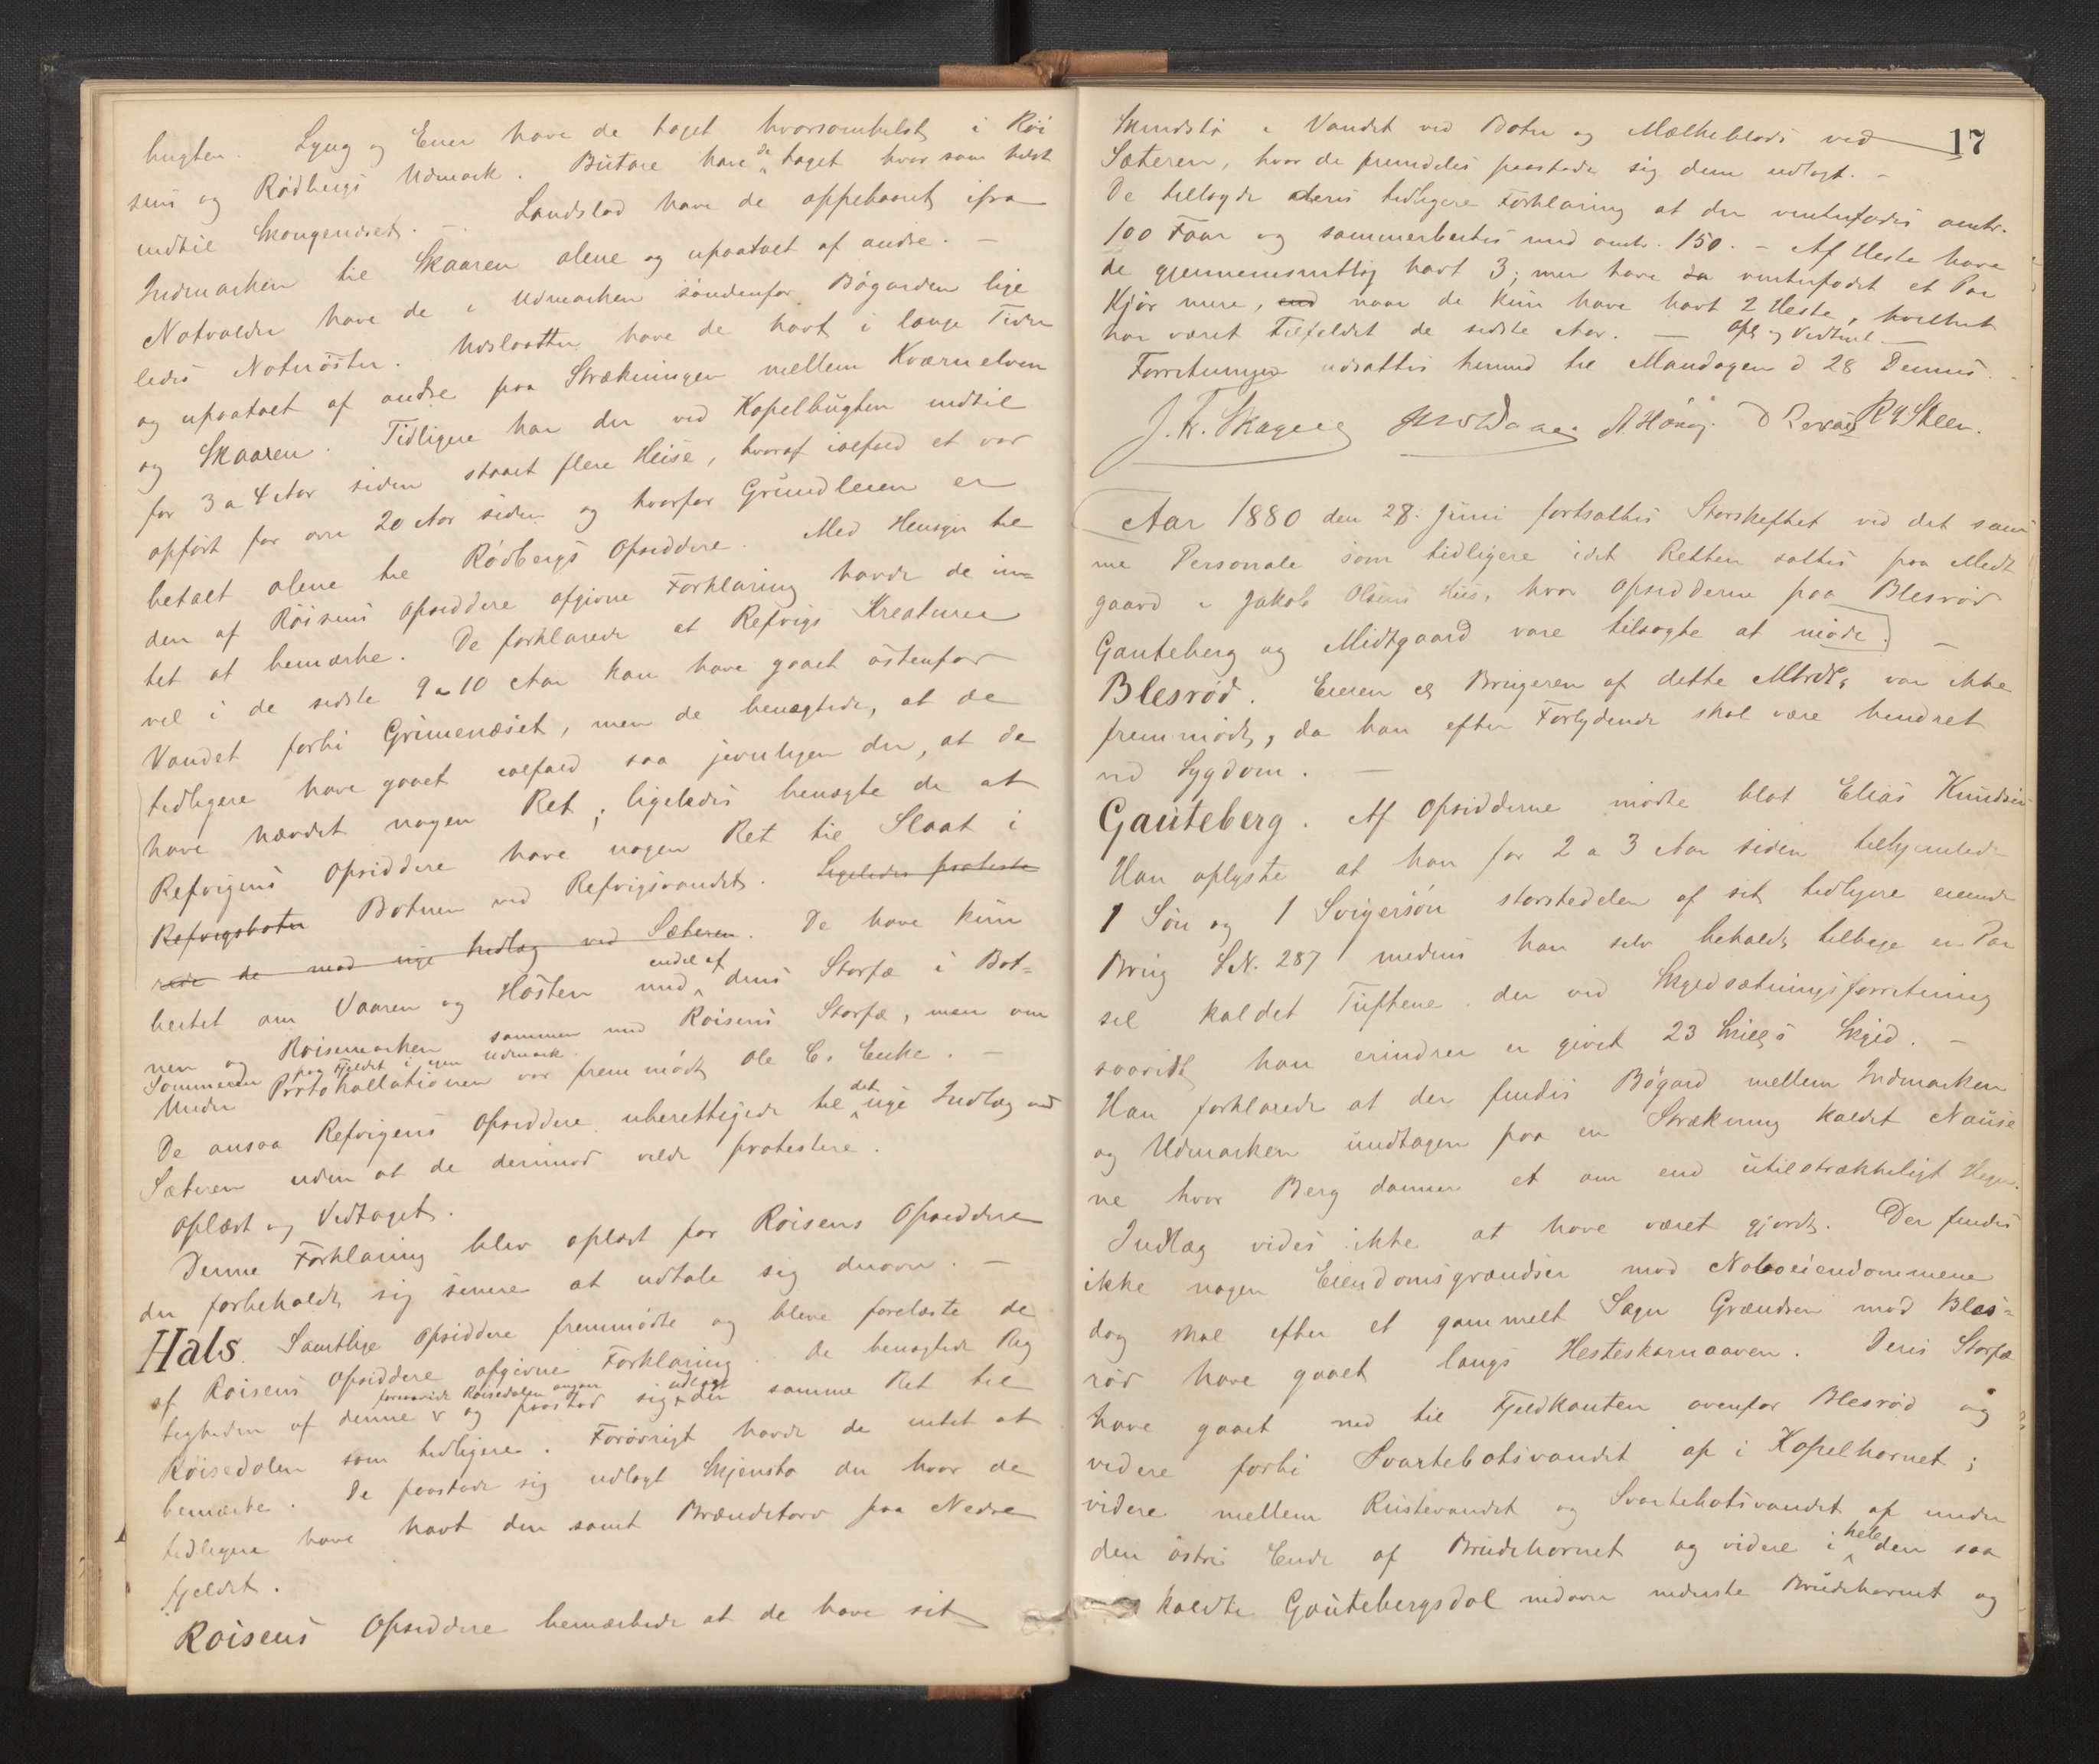 bugten. Lyng og Ener have de taget hvorsomhelst i Röi
sens og Rödbergs Udmark. Butare have de taget hvor som helst
indtil Skongenæset. – Landslod have de oppebaaret ifra
Indmarken til Skaaren alene og upaatalt af andre. –
Notvolder have de i Udmarken söndenfor Bögarden lige
ledes Notnöster. Udslaatter have de havt i lange Tider
og upaatalt af andre paa Strækningen mellem Kværnelven
og Skaaren. Tidligere har der ved Kapelbugten indtil
for 3 a 4 Aar siden staaet flere Huse, hvoraf ialfald et var
opfört for over 20 Aar siden og hvorfor Grundleien er
betalt alene til Rödbergs Opsiddere. Med Hensyn til
den af Röisens Opsiddere afgivne Forklaring havde de in=
tet at bemærke. De forklarede at Refvigs Kreaturer
vel i de sidste 9 a 10 Aar kan have gaaet östenfor
Vandet forbi Grimenæset, men de benægtede, at de
tidligere have gaaet ialfald saa jevnligen der, at de
have hævdet nogen Ret; ligeledes benægte de at
Refvigens Opsiddere have nogen Ret til Slaat i
Refvigsboten Botnen ved Refvigsvandet. Ligeledes proteste
rede de mod nye Indlæg ved Sæteren. De have kun
beitet om Vaaren og Hösten med endel af deres Storfæ i Bot=
nen og Röisemarken sammen med Röisens Storfæ, men om
Sommeren paa Fjeldet i egen Udmark.
Under Protokollationen var fremmödt Ole Es Enke. –
De ansaa Refvigens Opsiddere uberettigede til det nye Indlæg ved
Sæteren uden at de derimod vilde protestere.
Oplæst og Vedtaget.
Denne Forklaring blev oplæst for Röisens Opsiddere
der forbeholdt sig senere at udtale sig derover. –
Hals. Samtlige Opsiddere fremmödte og bleve forelæste de
af Röisens Opsiddere afgivne Forklaring. De benægtede Rig
tigheden af denne forsaavidt Röisedalen angaar og paastod sig udlagt der samme Ret til
Röisedalen som tidligere. Forövrigt havde de intet at
bemærke. De paastode sig udlagt Skjenstö der hvor de
tidligere have havt den samt Brændetorv paa Nedre
fjeldet.
Röisens Opsiddere bemærkede at de have sit
17
i Vandet ved Boter og ved
Sæteren, hvor de fremdeles paastode sig dem udlagt. –
De tillagde deres tidligere Forklaring at der vinterfödes omtr.
100 Faar og sommerbeites med omtr. 150. – Af Heste have
de gjennemsnitlig havt 3; men have da vinterfödet et Par
Kjör mere, end naar de kun have havt 2 Heste, hvilket
har været Tilfældet de sidste Aar. – Opl og Vedtaget –
Forretningen udsattes herved til Mandagen d 28 Dennes. –
J. Fr. Skagen R Steen.
Aar 1880 den 28. Juni fortsattes Storskiftet ved det sam
me Personale som tidligere idet Retten sattes paa Midt
gaard i Jakob Olsens Hus, hvor Opsidderne paa Blesröd
Gauteberg og Midtgaard vare tilsagte at möde. –
Blesröd. Eieren og Brugeren af dette Matr. var ikke
fremmödt, da han efter Forlydende skal være hindret
ved Sygdom. –
Gauteberg. Af Opsidderne mödte blot Elias Knudsen
Han oplyste at han for 2 a 3 Aar siden tilhjemlede
1 Sön og 1 Svigersön störstedelen af sit tidligere eiende
Brug LN. 287 medens han selv beholdt tilbage en Par
sel kaldet Tuftene der ved Skyldsætningsforretning
saavidt han erindrer er givet 23 Skill.s Skyld. –
Han forklarede at der findes Bögard mellem Indmarken
og Udmarken undtagen paa en Strækning kaldet Nause
ne hvor Berg danner et om end utilstrækkeligt Hegn.
Indlæg vides ikke at have været gjordt. Der findes
ikke nogen Eiendomsgrændser mod Naboeiendommene
dog skal efter et gammelt Sagn Grændsen mod Bles=
röd have gaaet langs Hesteskarnaaven. Deres Storfæ
have gaaet ned til Fjeldkanten ovenfor Blesröd og
videre forbi Svartebotsvandet op i Kapelhornet;
videre mellem Rustevandet og Svartebotsvandet op under
den östre Ende af Brudehornet og videre i hele den saa
kaldte Gautebergsdal nedover nederste Brudehornet og